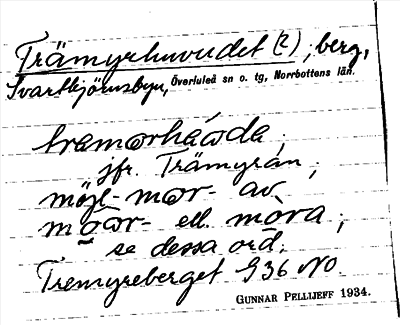 Trämyrhuvudet (?), berg,
Svartbjörnsbyn, Överluleå sn o. tg, Norrbottens län.
jfr. Trämyrån;
möjl- mor- av
ell. mòra;
se dessa ord.
Tremyreberget G36 NO.
GUNNAR PELLIJEFF 1934.